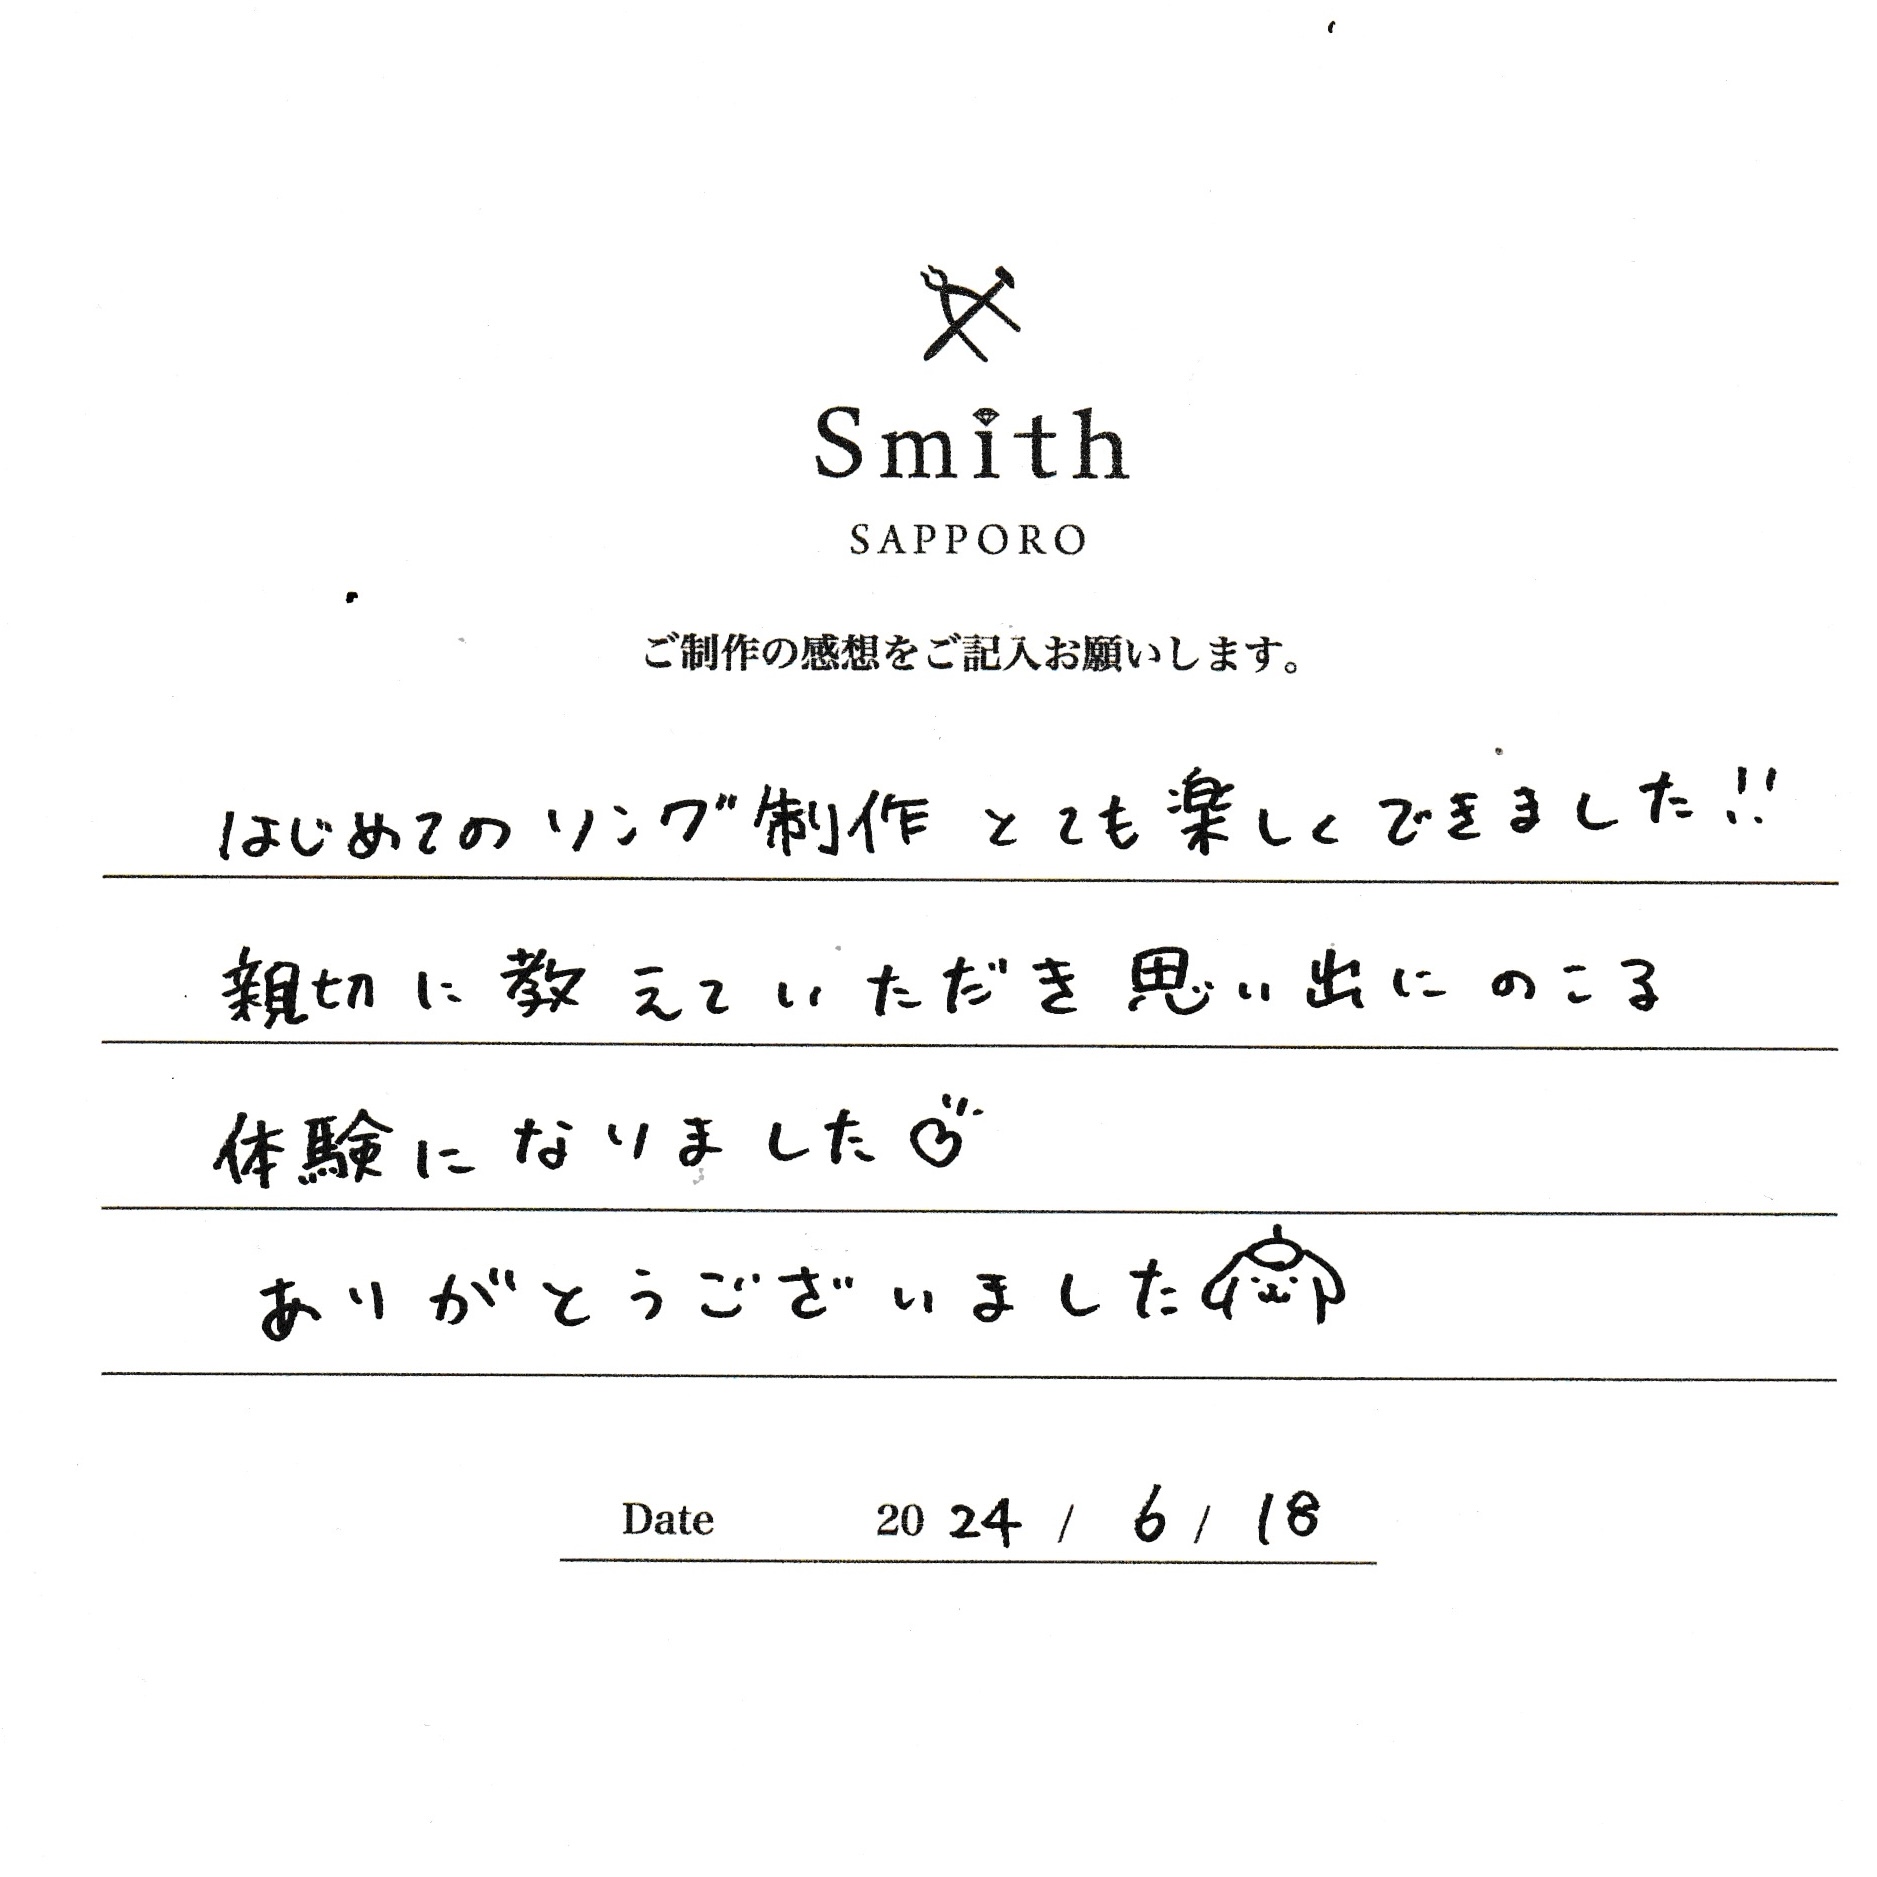 Smith
SAPPORO
ご制作の感想をご記入お願いします。
はじめてのリング制作とても楽しくできました!!
親切に教えていただき思い出にのこる
体験になりました
ありがとうございました
Date 2024 / 6 / 18